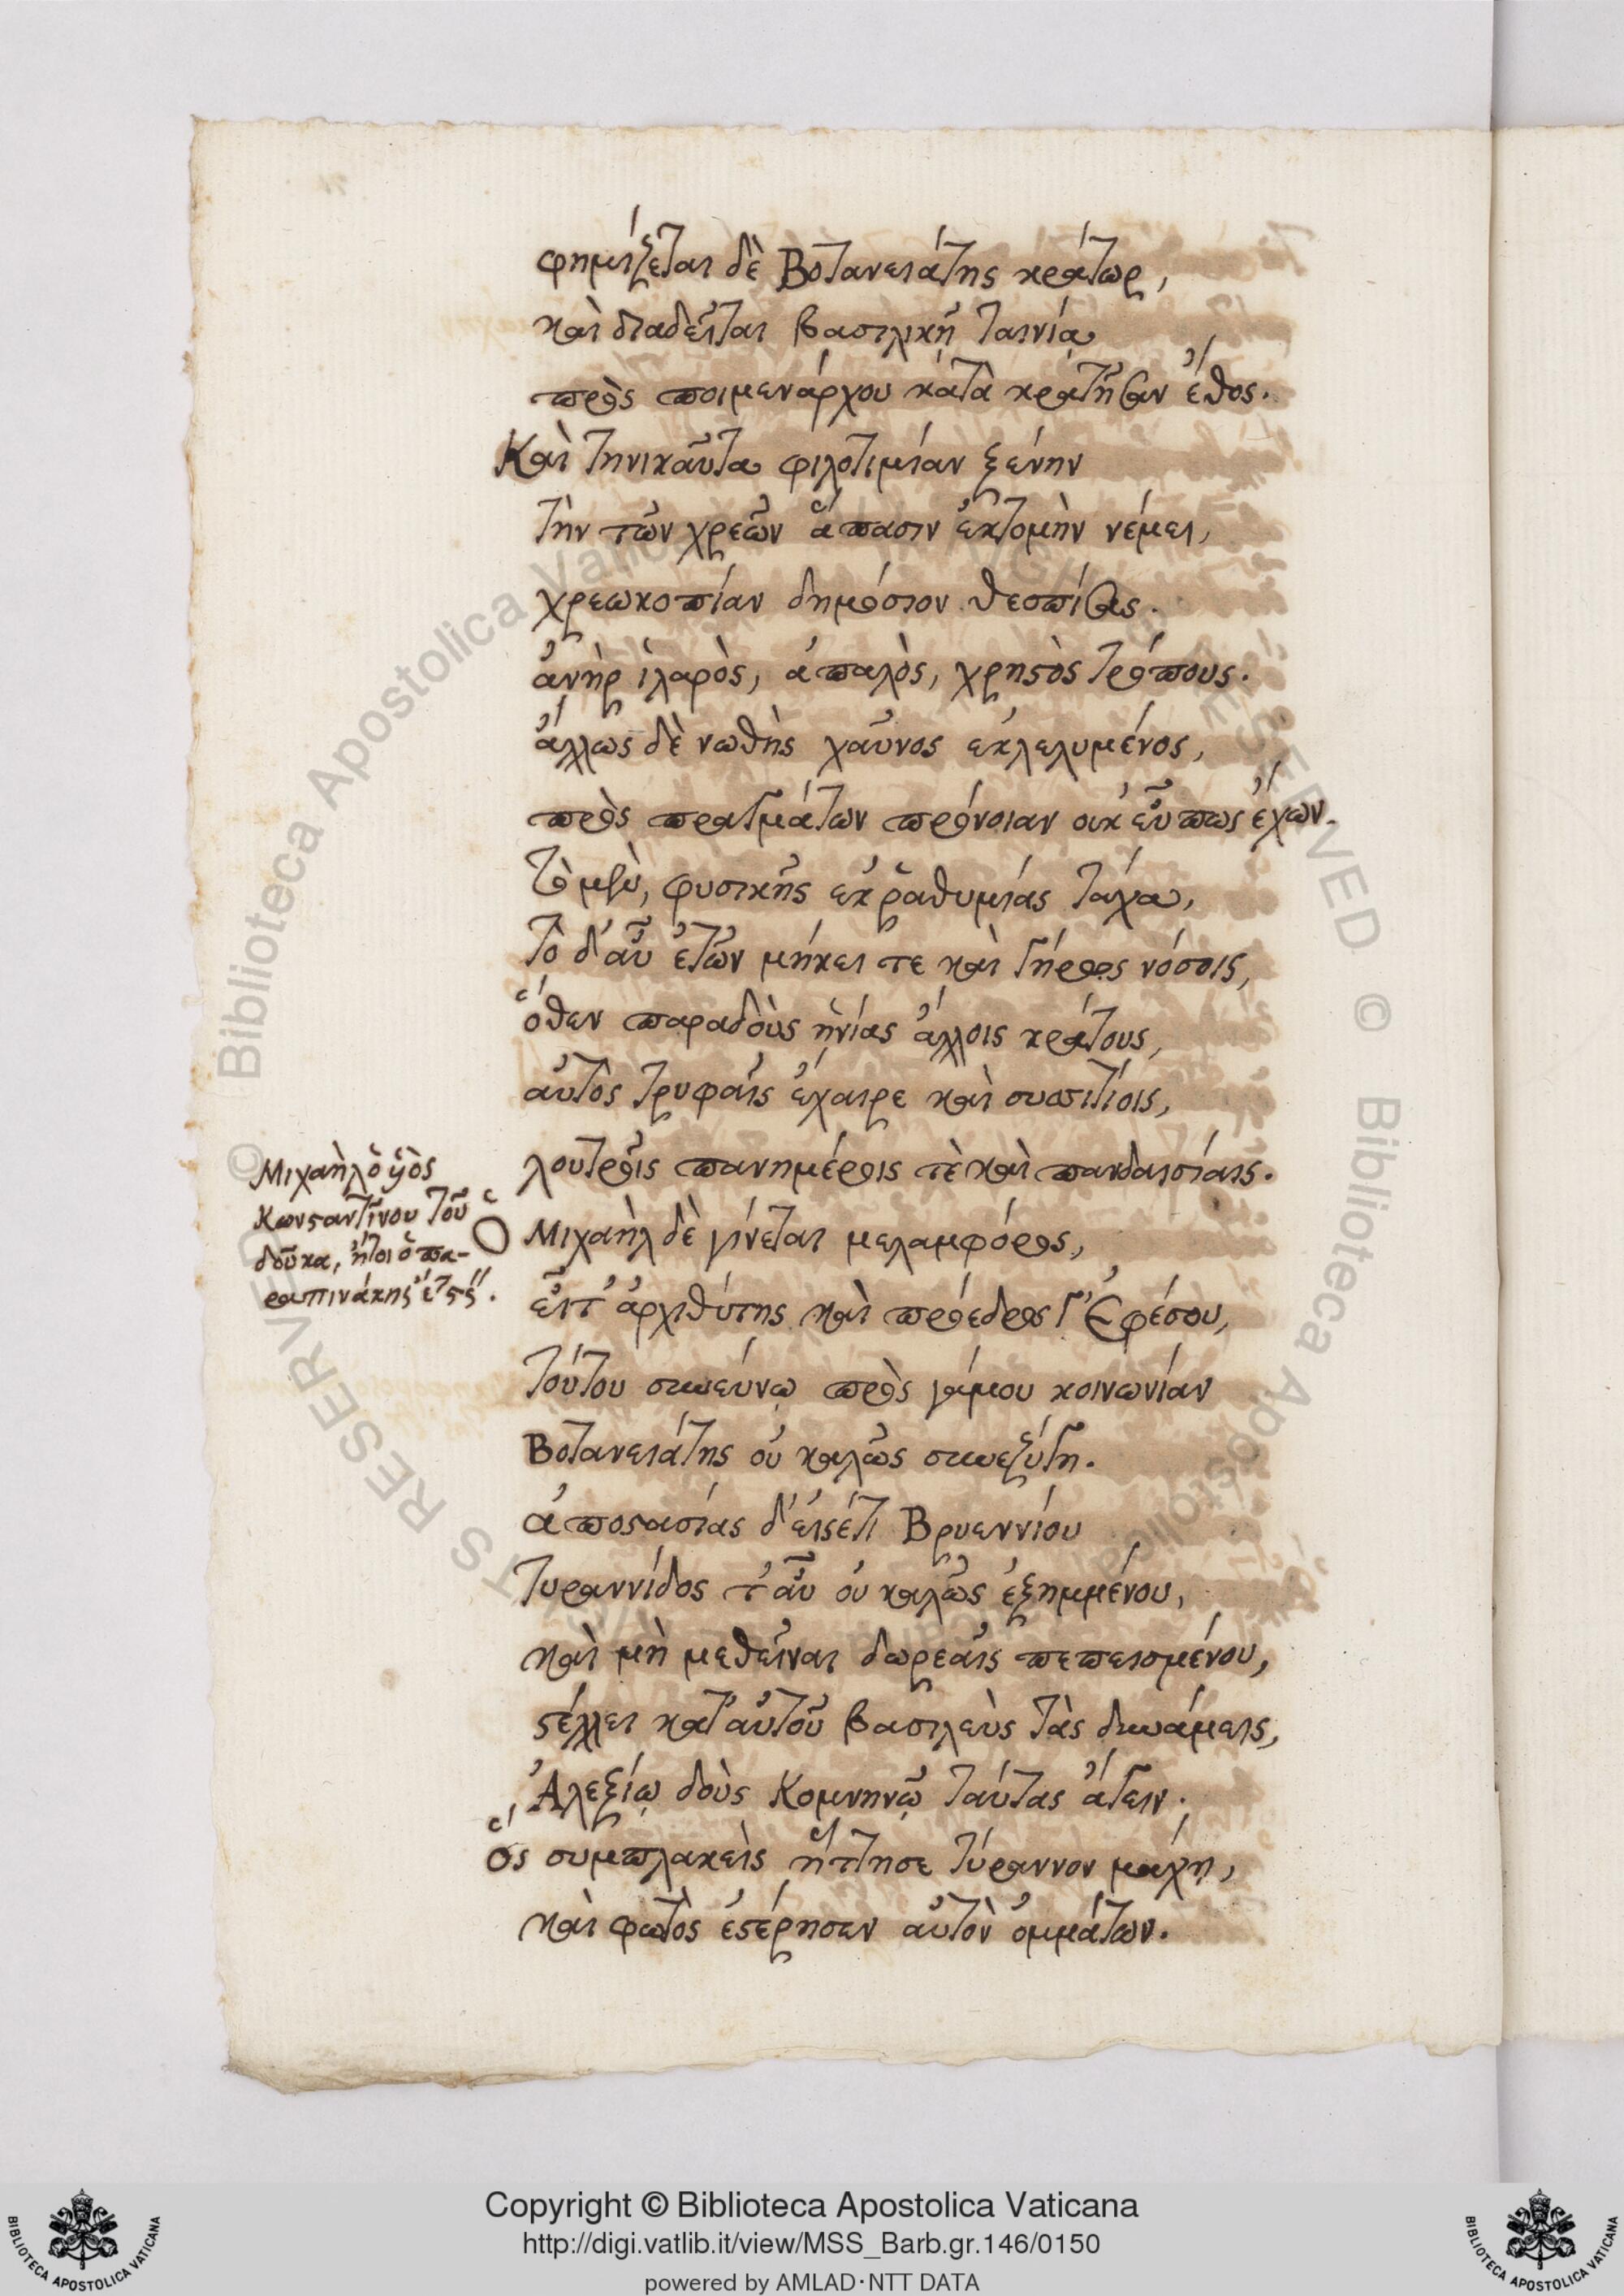 φημίζεται δὲ Βοτανειάτης κράτωρ,
καὶ διαδεῖται βασιλικῇ ταινίᾳ
πρὸς ποιμενάρχου κατὰ κρατῆσαν ἔθος.
Καὶ τηνικαῦτα φιλοτιμίαν ξένην
τὴν τῶν χρεῶν ἅπασιν ἐκτομὴν νέμει,
χρεωκοπίαν δημόσιον θεσπίσας.
ἀνὴρ ἱλαρὸς, ἁπαλὸς, χρηστὸς τρόπους.
ἄλλως δὲ νωθὴς χαῦνος ἐκλελυμένος,
πρὸς πραγμάτων πρόνοιαν οὐκ εὖ πως ἔχων.
τὸ μὲν, φυσικῆς ἐκ ῥαθυμίας τάχα,
τὸ δ' αὖ ἐτῶν μήκει τε καὶ γήρως νόσοις,
ὅθεν παραδοὺς ἡνίας ἄλλοις κράτους,
αὐτὸς τρυφαῖς ἔχαιρε καὶ συσσιτίοις,
λουτροῖς πανημέροις τὲ καὶ πανδαισίαις.
Μιχαὴλ ὁ ὑὸς
Κωνσταντίνου τοῦ
δοῦκα, ἤτοι ὁ πα-
ραπινάκης ἔτ ϛ''.
Ὁ Μιχαὴλ δὲ γίνεται μελαμφόρος,
εἶτ' ἀρχιθύτης καὶ πρόεδρος γ' Ἐφέσου,
Τούτου συνεύνῳ πρὸς γάμου κοινωνίαν
Βοτανειάτης οὐ καλῶς συνεζύγη.
ἀποστασίας δ' εἰσέτι Βρυεννίου
τυραννίδος τ' αὖ οὐ καλῶς ἐξημμένου,
καὶ μὴ μεθεῖναι δωρεαῖς πεπεισμένου,
στέλλει κατ' αὐτοῦ βασιλεὺς τὰς δυνάμεις,
Ἀλεξίῳ δοὺς Κομνηνῷ ταύτας ἄγειν.
Ὃς συμπλακεὶς ἥττησε τύραννον μάχῃ,
καὶ φωτὸς ἐστέρησεν αὐτὸν ὀμμάτων.
Copyright © Biblioteca Apostolica Vaticana
http://digi.vatlib.it/view/MSS_Barb.gr.146/0150
powered by AMLAD·NTT DATA